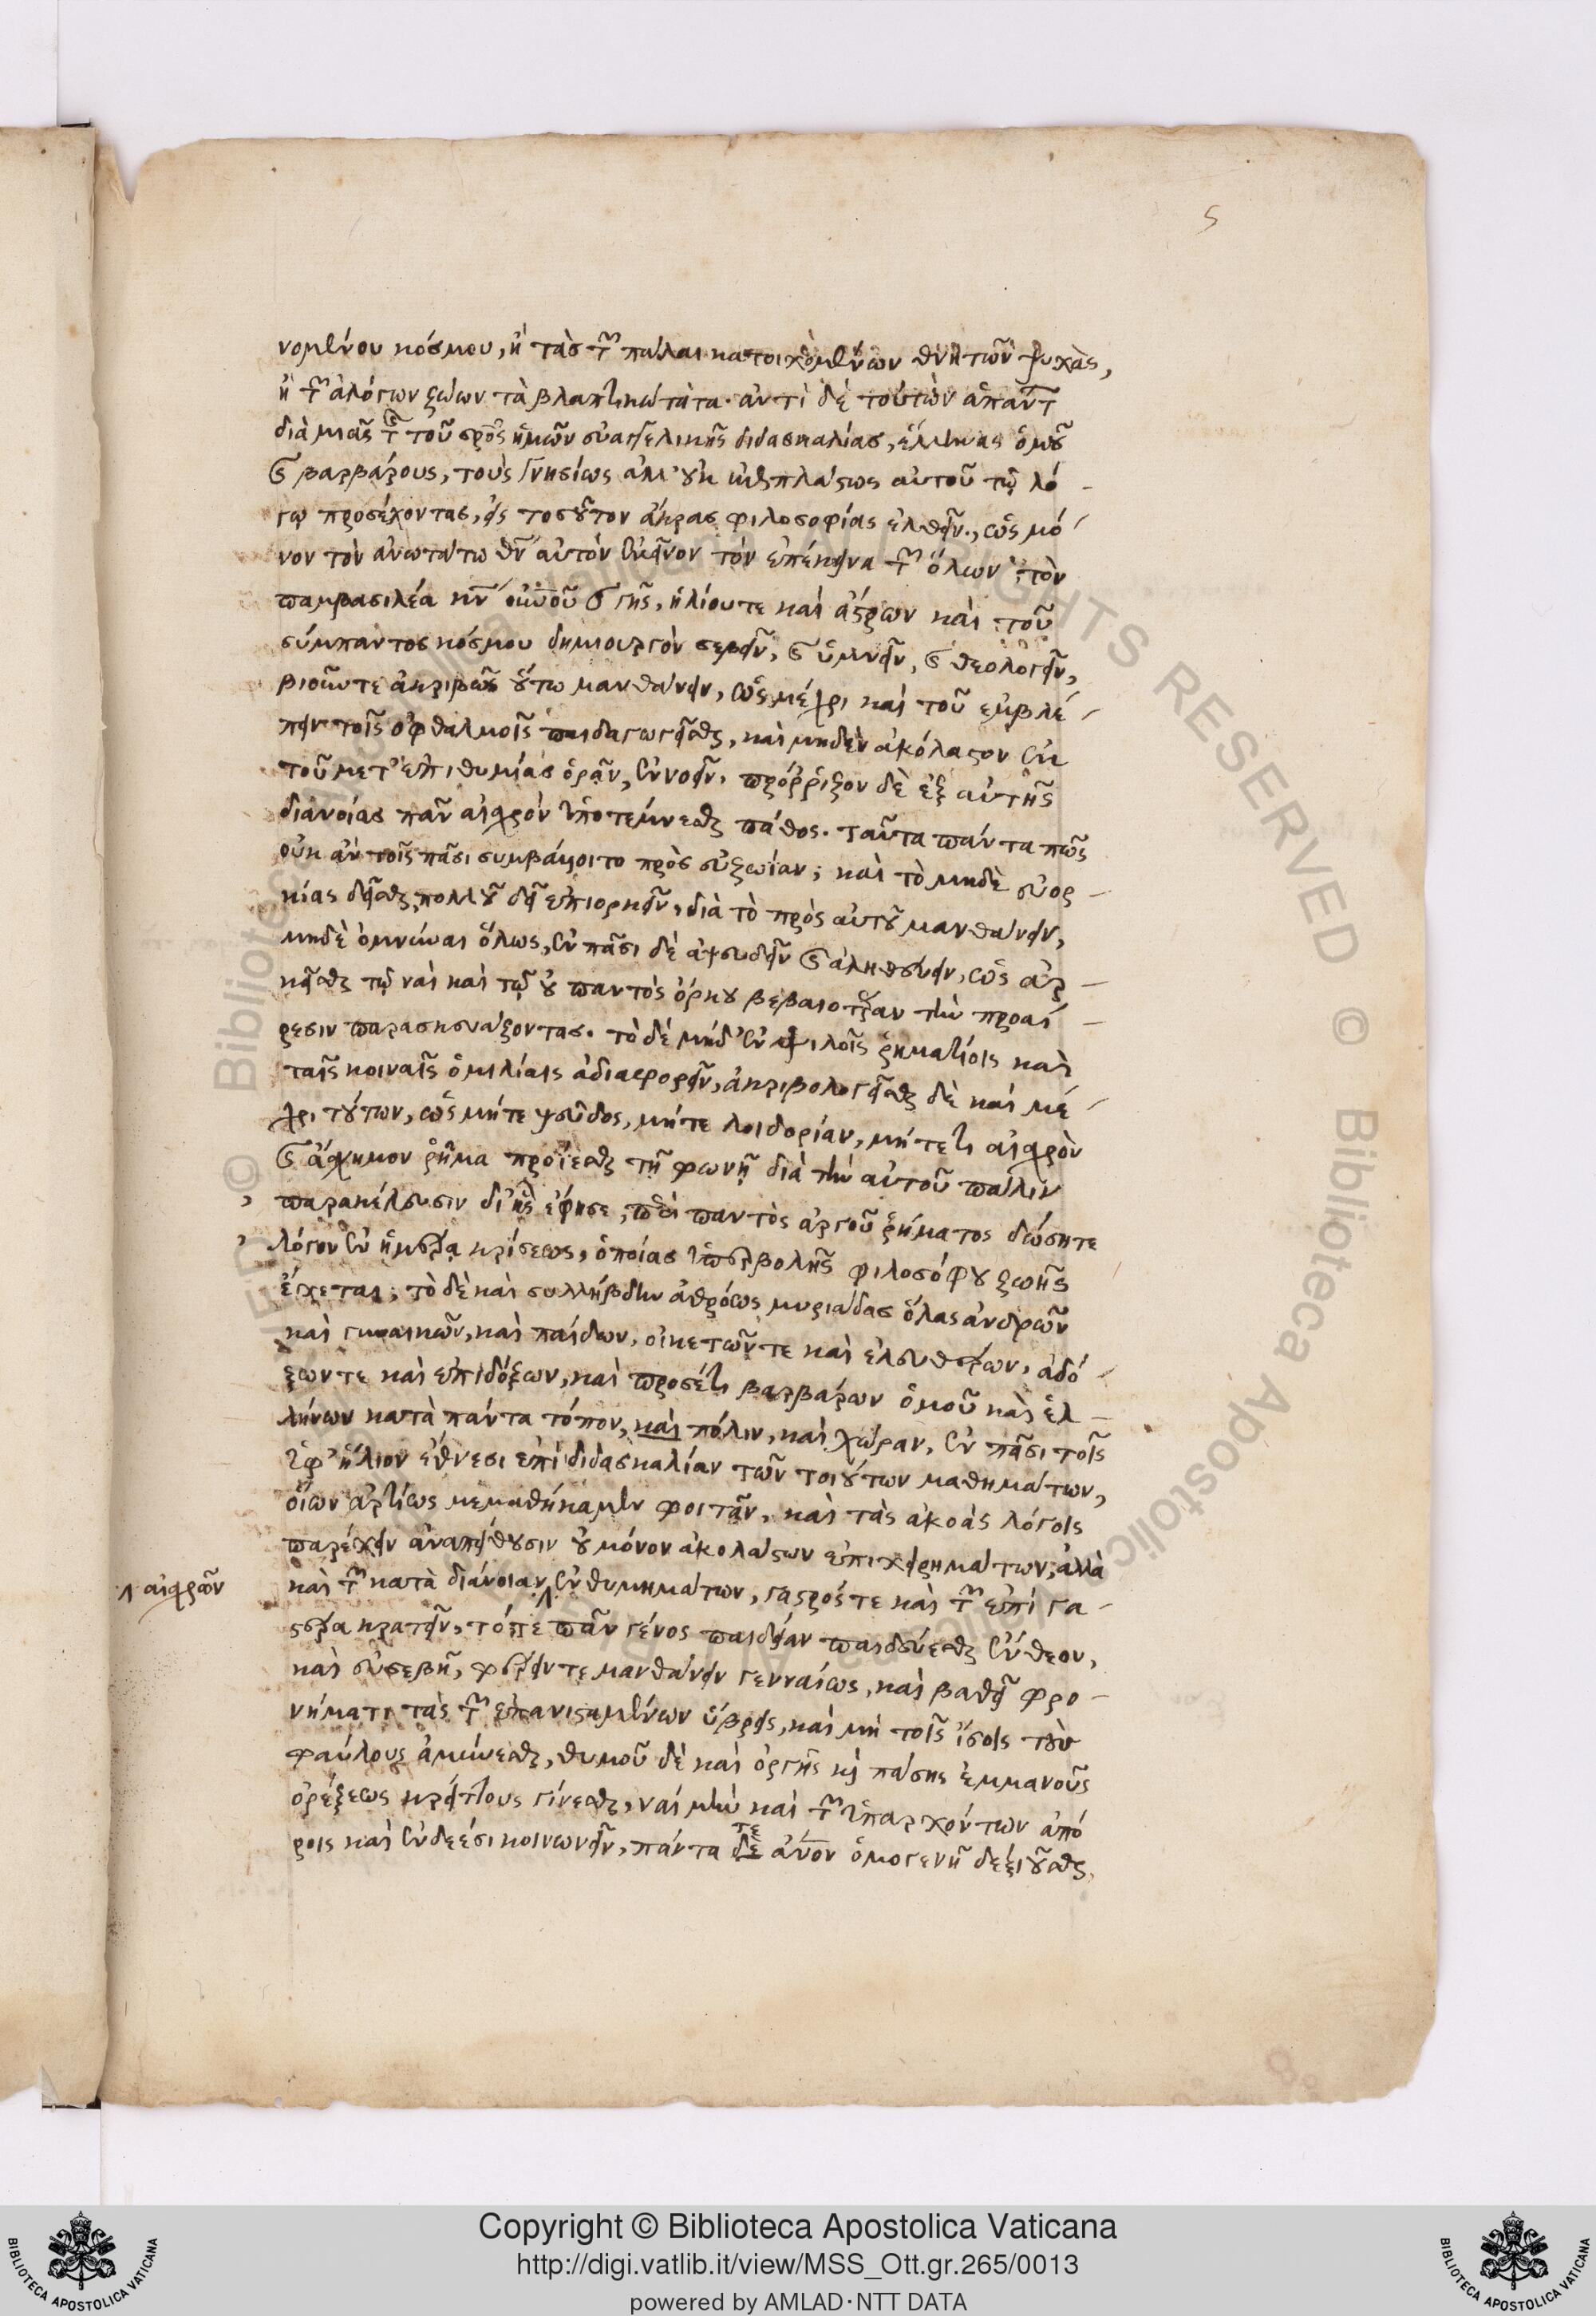 5
νομένου κόσμου, ἢ τὰς τῶν πάλαι κατοιχομένων θνητῶν ψυχὰς,
ἢ τῶν ἀλόγων ζώων τὰ βλαπτικώτατα· ἀντὶ δὲ τούτων ἁπάντων
διὰ μιᾶς τῆς τοῦ σρ̅ος ἡμῶν εὐαγγελικῆς διδασκαλίας, ἕλληνας ὁμοῦ
καὶ βαρβάρους, τοὺς γνησίως ἀλλ' οὐκ ἐπιπλάστως αὐτοῦ τῷ λό-
γῳ προσέχοντας, εἰς τοσοῦτον ἄκρας φιλοσοφίας ἐλθεῖν, ὡς μό-
νον τὸν ἀνωτάτω θν̅ αὐτὸν ἐκεῖνον τὸν ἐπέκεινα τῶν ὅλων, τὸν
παμβασιλέα κν̅ οὐνοῦ καὶ γῆς, ἡλίου τε καὶ ἄστρων καὶ τοῦ
σύμπαντος κόσμου δημιουργὸν σέβειν, καὶ ὑμνεῖν, καὶ θεολογεῖν,
βιοῦν τε ἀκριβῶς οὕτω μανθάνειν, ὡς μέχρι καὶ τοῦ ἐμβλέ-
πειν τοῖς ὀφθαλμοῖς παιδαγωγεῖσθαι, καὶ μηδὲν ἀκόλαστον ἐκ
τοῦ μετ' ἐπιθυμίας ὁρᾶν, ἐννοεῖν, πρόρριζον δὲ ἐξ αὐτῆς
διανοίας πᾶν αἰσχρὸν ὑποτέμνεσθαι πάθος. ταῦτα πάντα πῶς
οὐκ ἂν τοῖς πᾶσι συμβάλοιτο πρὸς εὐζωίαν; καὶ τὸ μηδὲ εὐορ-
κίας δεῖσθαι, πολλοῦ δεῖ ἐπιορκεῖν, διὰ τὸ πρὸς αὐτοῦ μανθάνειν,
μηδὲ ὀμνύναι ὅλως, ἐν πᾶσι δὲ ἀψευδεῖν καὶ ἀληθεύειν, ὡς ἀρ-
κεῖσθαι τῷ ναὶ καὶ τῷ οὐ παντὸς ὅρκου βεβαιοτέραν τὴν προαί-
ρεσιν παρασκευάζοντας. τὸ δὲ μηδ' ἐν ψιλοῖς ῥηματίοις καὶ
ταῖς κοιναῖς ὁμιλίαις ἀδιαφορεῖν, ἀκριβολογεῖσθαι δὲ καὶ μέ-
χρι τούτων, ὡς μήτε ψεῦδος, μήτε λοιδορίαν, μήτε τι αἰσχρὸν
καὶ ἄσχημον ῥῆμα προίεσθαι τῇ φωνῇ διὰ τὴν αὐτοῦ πάλιν
παρακέλευσιν δι' ἧς ἔφησε, περὶ παντὸς ἀργοῦ ῥήματος δώσητε
λόγον ἐν ἡμέρᾳ κρίσεως, ὁποίας ὑπερβολῆς φιλοσόφου ζωῆς
ἔχεται; τὸ δὲ καὶ συλλήβδην ἀθρόως μυριάδας ὅλας ἀνδρῶν
καὶ γυναικῶν, καὶ παίδων, οἰκετῶν τε καὶ ἐλευθέρων, ἀδό-
ξων τε καὶ ἐπιδόξων, καὶ προσέτι βαρβάρων ὁμοῦ καὶ ἑλ-
λήνων κατὰ πάντα τόπον, καὶ πόλιν, καὶ χώραν, ἐν πᾶσι τοῖς
ὑφ' ἥλιον ἔθνεσι ἐπὶ διδασκαλίαν τῶν τοιούτων μαθημάτων,
οἵων ἀρτίως μεμαθήκαμεν φοιτᾶν, καὶ τὰς ἀκοὰς λόγοις
παρέχειν ἀναπείθουσιν οὐ μόνον ἀκολάστων ἐπιχειρημάτων, ἀλλὰ
καὶ τῶν κατὰ διάνοιαν ἐνθυμημάτων, γαστρός τε καὶ τῶν ἐπὶ γα-
/\ αἰσχρῶν
στέρα κρατεῖν, τό τε πᾶν γένος παιδείαν παιδεύεσθαι ἔνθεον,
καὶ εὐσεβῆ, φέρειν τε μανθάνειν γενναίως, καὶ βαθεῖ φρο-
νήματι τὰς τῶν ἐπανισταμένων ὕβρεις, καὶ μὴ τοῖς ἴσοις τοὺς
φαύλους ἀμύνεσθαι, θυμοῦ δὲ καὶ ὀργῆς καὶ πάσης ἐμμανοῦς
ὀρέξεως κρείττους γίνεσθαι, ναὶ μὴν καὶ τῶν ὑπαρχόντων ἀπό
ροις καὶ ἐνδεέσι κοινωνεῖν, πάντα δὲ τε ἄν̅ον ὁμογενῆ δεξιοῦσθαι,
Copyright © Biblioteca Apostolica Vaticana
http://digi.vatlib.it/view/MSS_Ott.gr.265/0013
powered by AMLAD·NTT DATA